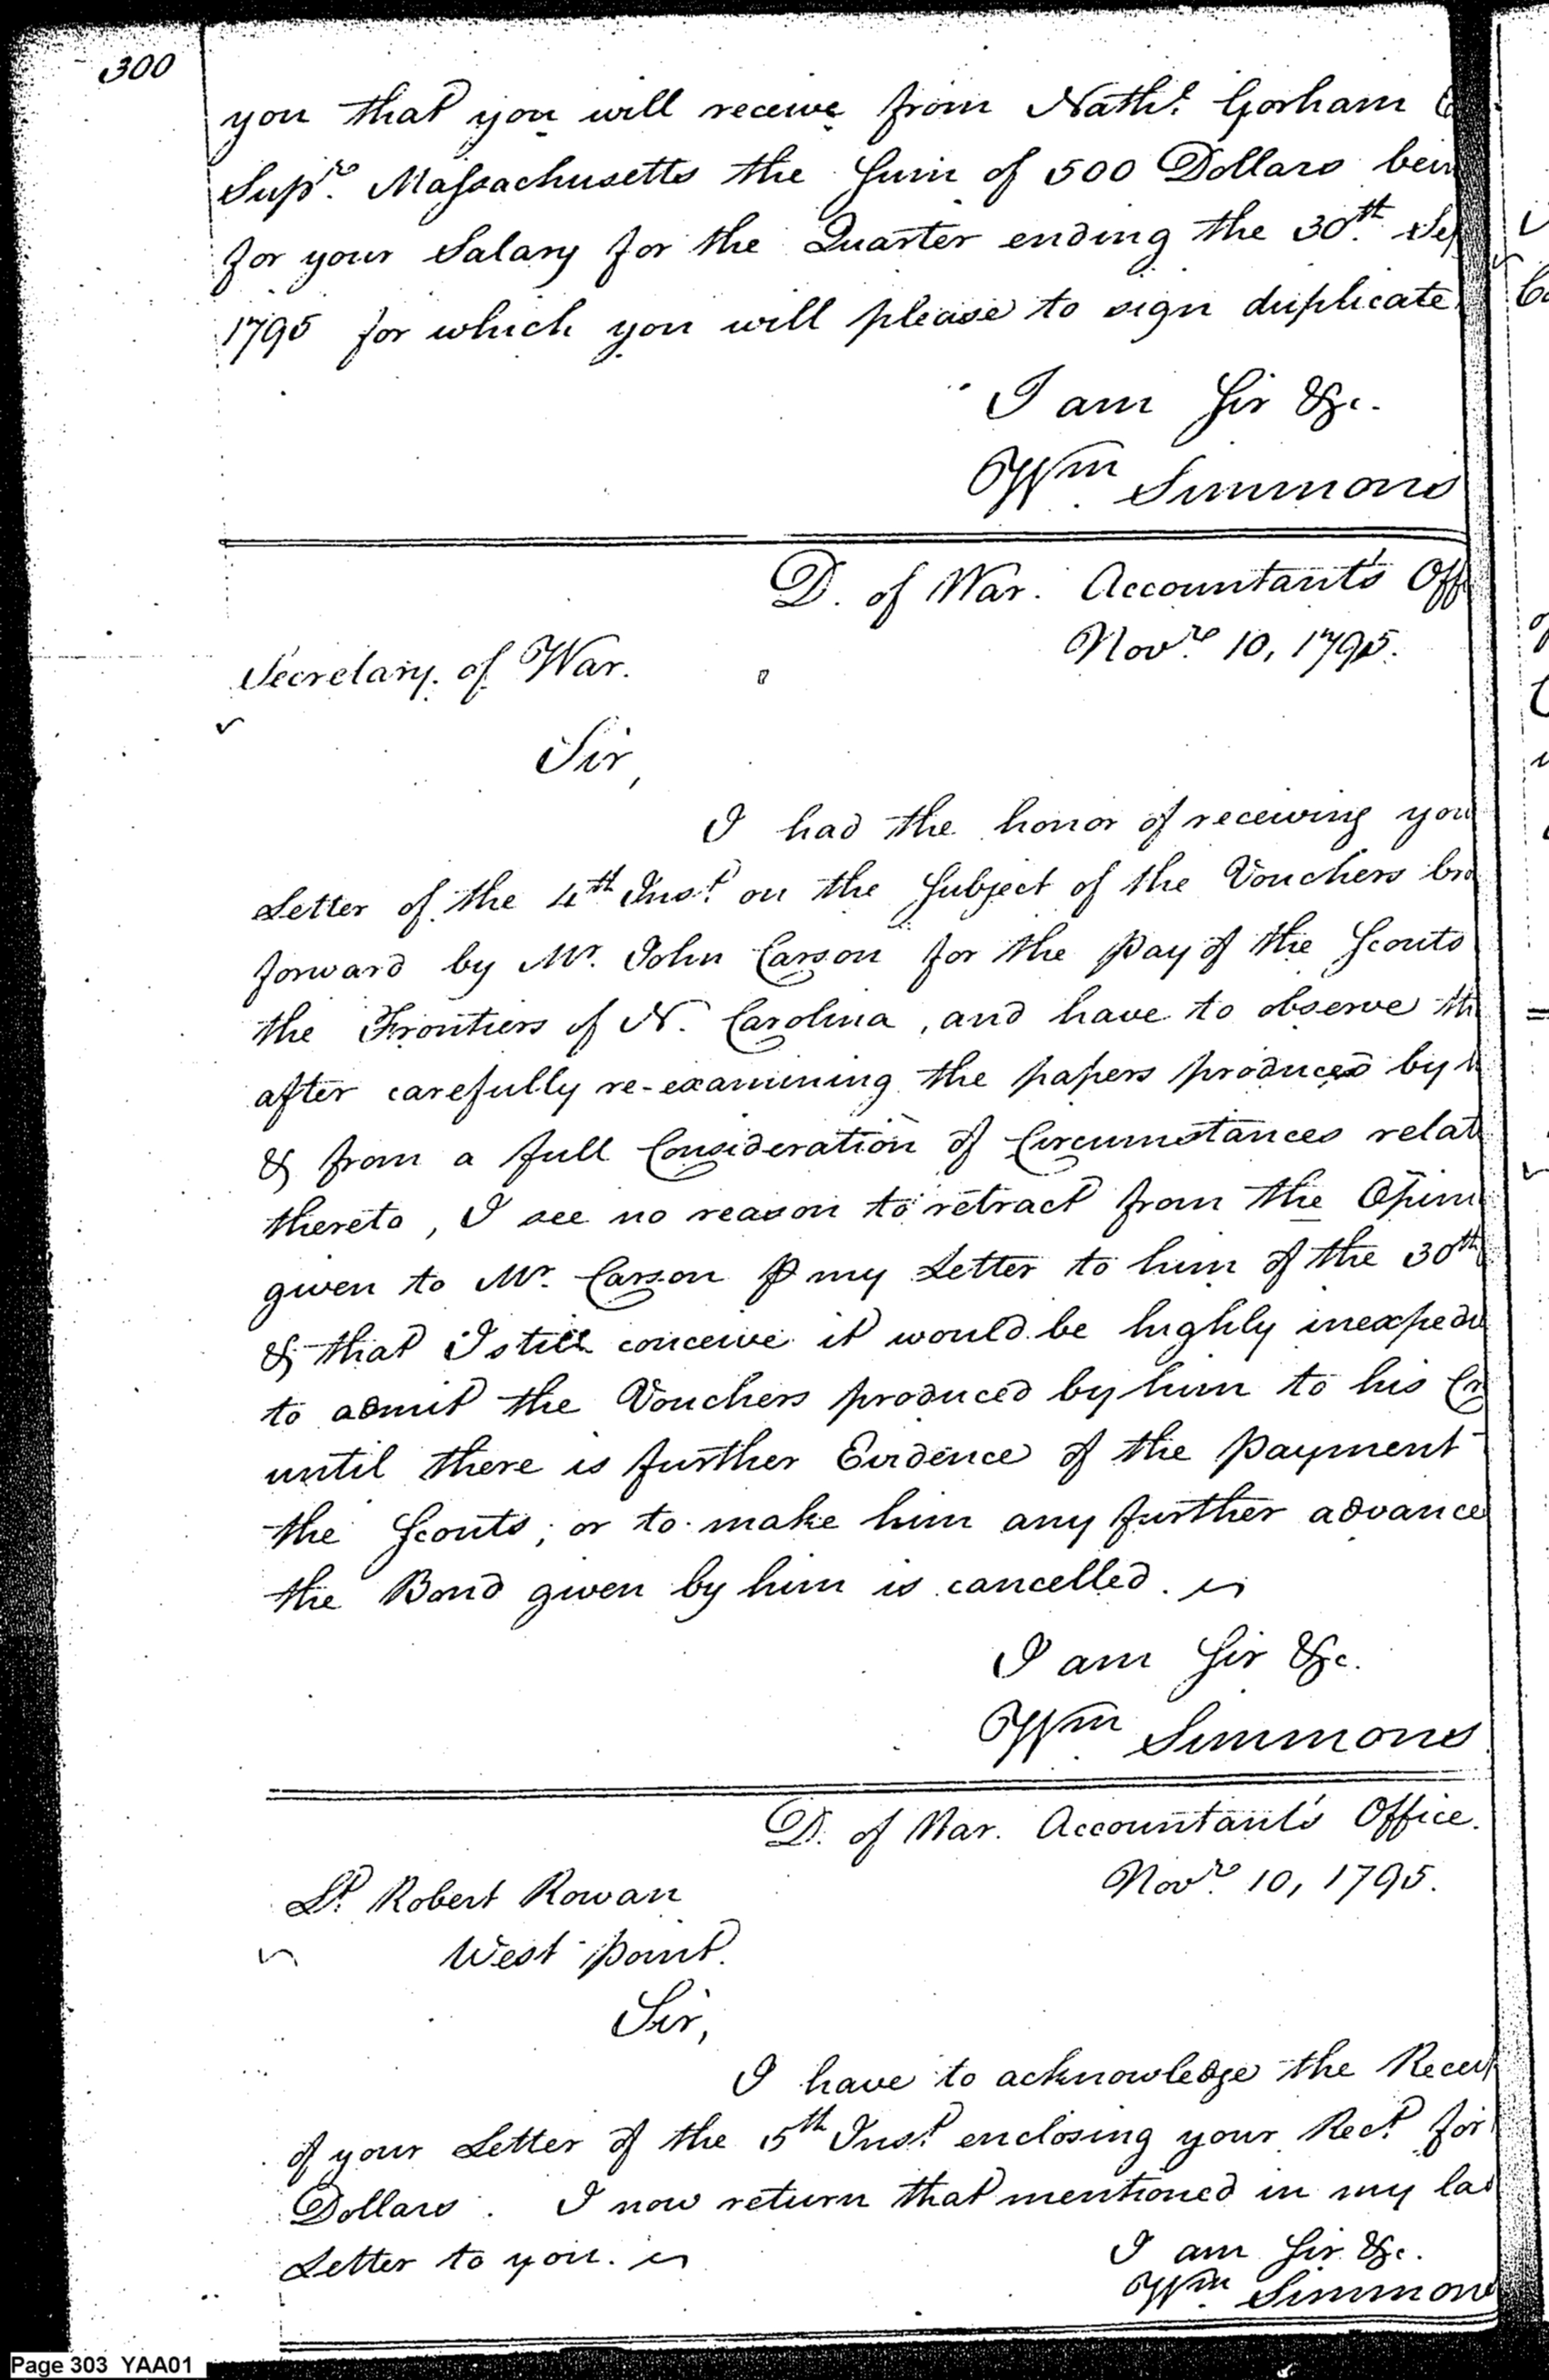 300
you that you will receive from Nathl. Gorham
Supre. Massachusetts the Sum of 500 Dollars bein
for your Salary for the Quarter ending the 30th. Sep
1795 for which you will please to sign duplicate
I am Sir &c.
Wm. Simmons
D. of War. Accountant's Off
Novre. 10, 1795.
Secretary of War.
Sir,
I had the honor of receiving you
Letter of the 4th Inst. on the Subject of the Vouchers bro
forward by Mr. John Carson for the pay of the Scouts
the Frontiers of N. Carolina, and have to observe th
after carefully re-examining the papers produced by h
& from a full Consideration of Circumstances relat
thereto, I see no reason to retract from the Opini
given to Mr. Carson ⅌ my Letter to him of the 30th
& that I still conceive it would be highly inexpedi
to admit the Vouchers produced by him to his Cr
until there is further Evidence of the payment
the Scouts, or to make him any further advance
the Bond given by him is cancelled.
I am Sir &c.
Wm. Simmons
D. of War. Accountant's Office.
Novre. 10, 1795.
Lt. Robert Rowan
West point.
Sir,
I have to acknowledge the Receip
of your Letter of the 5th Inst. enclosing your Rect. for
Dollars. I now return that mentioned in my las
Letter to you.
I am Sir &c.
Wm. Simmons
Page 303 YAA01